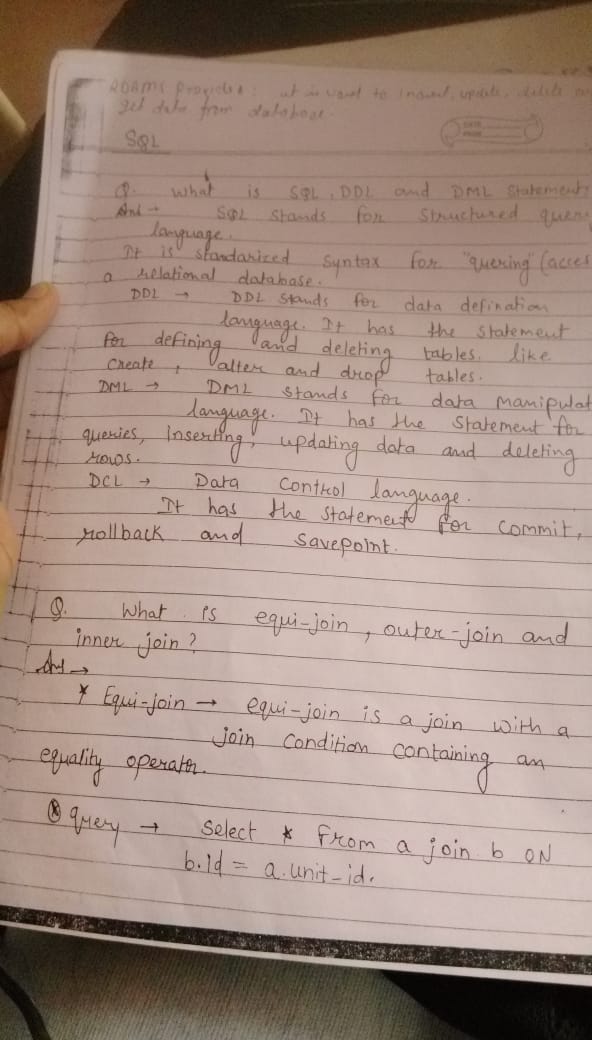 RDBMS Provides: ut is used to insert, update, delete
get data from database.
DATE
PAGE
SQL
Q. What is SQL, DDL and DML Statement
Ans → SQL Stands for Structured quer
language.
It is standarized Syntax for "quering" (acces
a relational database.
DDL → DDL Stands for data defination
language. It has the statement
for defining and deleting tables. like
create, alter and drop tables.
DML → DML Stands for data manipulat
language. It has the Statement for
queries, Inserting, updating data and deleting
rows.
DCL → Data Control language.
It has the statement for commit,
rollback and savepoint.
Q. What is equi-join, outer-join and
inner join?
Ans →
* Equi-join → equi-join is a join with a
join condition containing an
equality operator.
⊛ query → Select * from a join b ON
b.Id = a.unit-id.